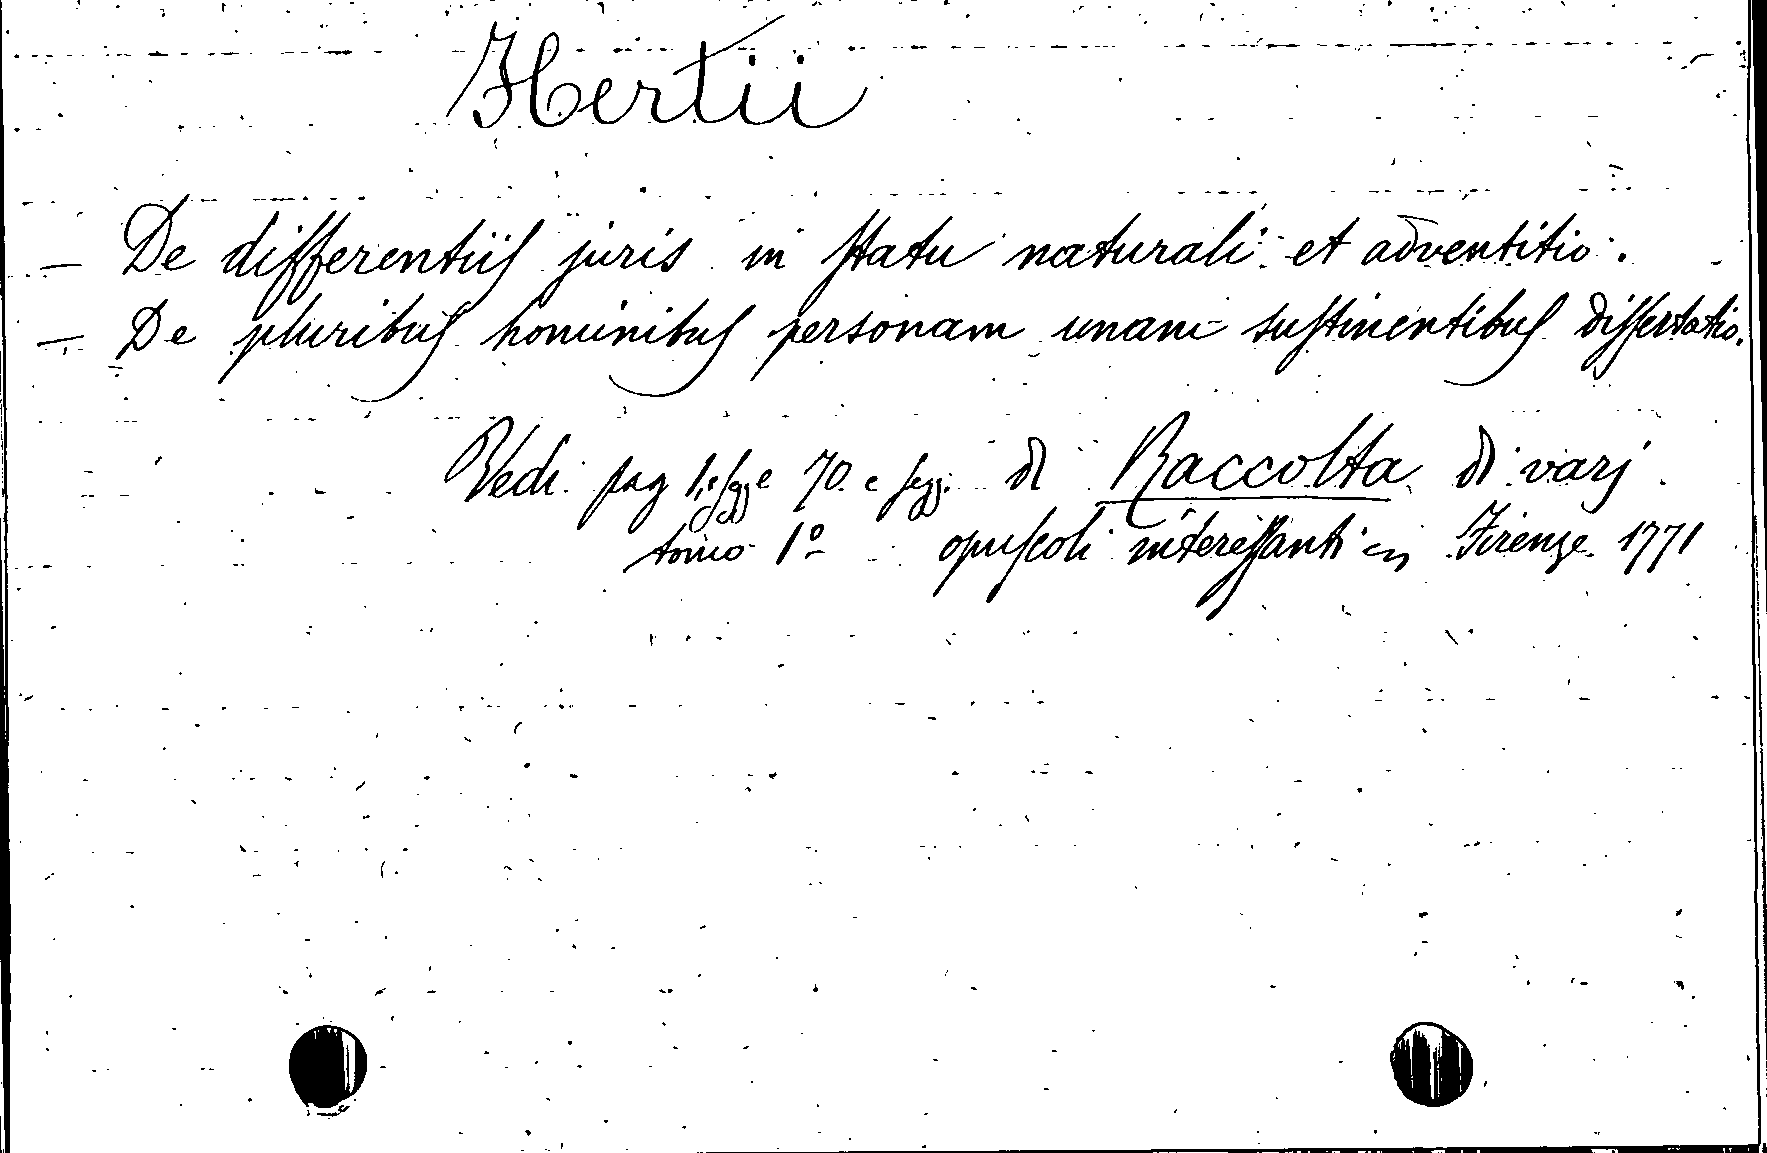 Hertii
— De differentiis juris in statu naturali et adventitio.
— De pluribus hominibus personam unam sustinentibus dissertatio.
Vedi pag 1. e segg e 70. e segg. di Raccolta di varj
tomo 1º opuscoli interessanti in Firenze 1771